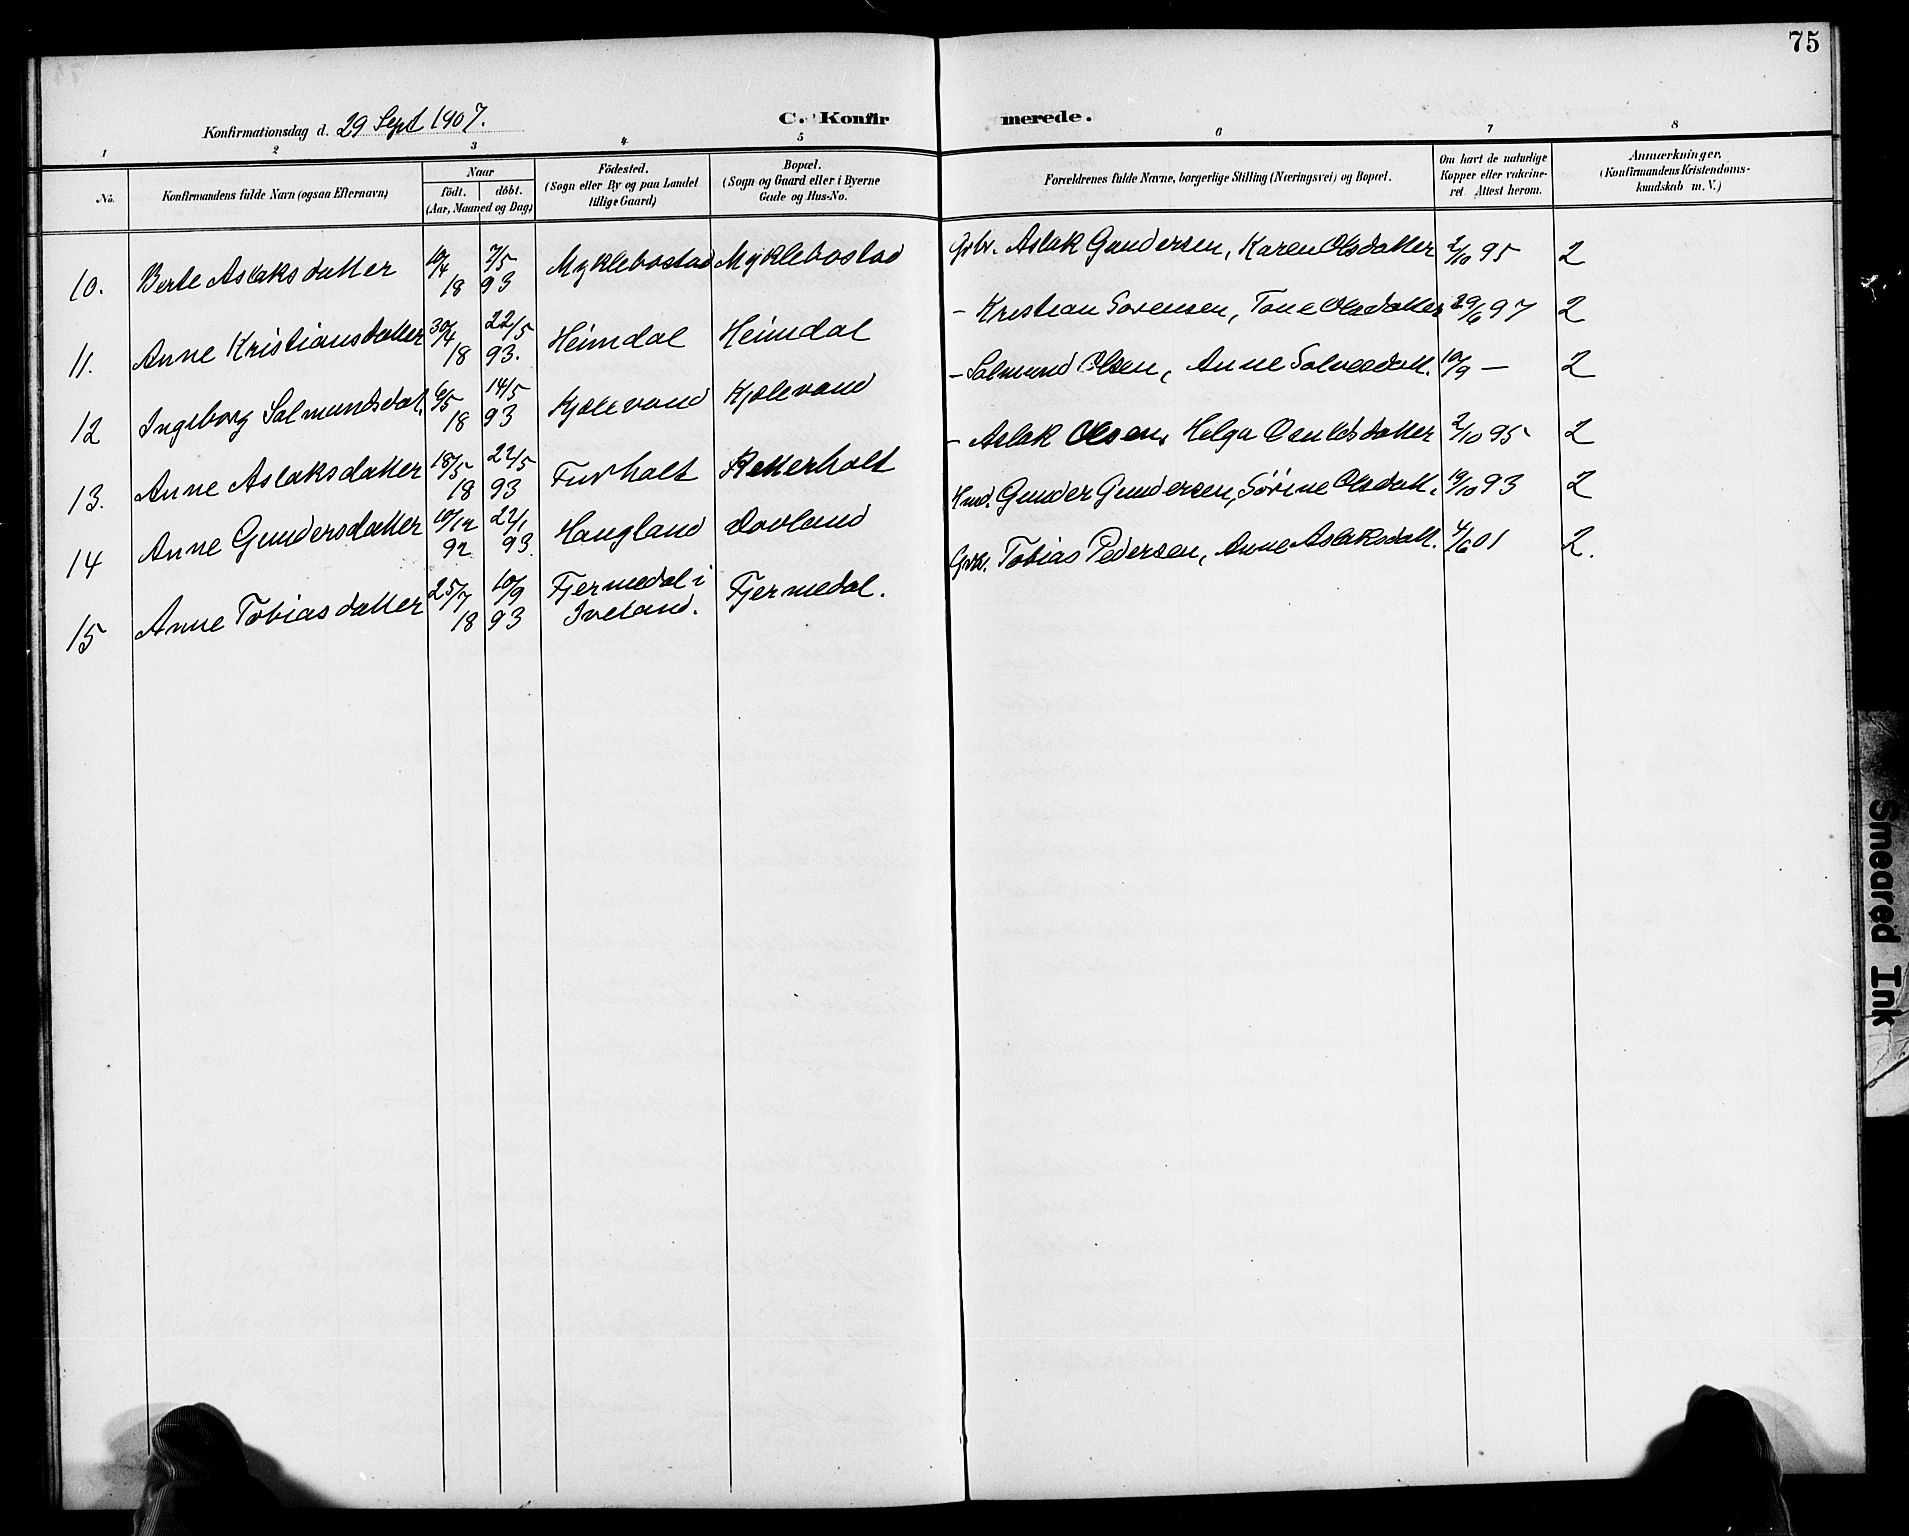 75
Konfirmationsdag d. 29 Sept 1907.
C. Konfirmerede.
1 2 3 4 5 6 7 8
No.
Konfirmandens fulde Navn (ogsaa Efternavn)
Naar
født. døbt.
(Aar, Maaned og Dag)
Fødested.
(Sogn eller By og paa Landet
tillige Gaard)
Bopæl.
(Sogn og Gaard eller i Byerne
Gade og Hus-No.
Forældrenes fulde Navne, borgerlige Stilling (Næringsvei) og Bopæl.
Om havt de naturlige
Kopper eller vakcine-
ret. Attest herom.
Anmærkninger,
(Konfirmandens Kristendoms-
kundskab m. V.)
10. Berte Aslaksdatter 10/4 18 7/5 93 Myklebostad Myklebostad Gbr. Aslak Gundersen, Karen Olsdatter 2/10 95 2
11. Anne Kristiansdatter 30/4 18 22/5 93. Heimdal Heimdal - Kristian Sørensen, Tone Olsdatter 29/6 97 2
12 Ingeborg Salmundsdat. 6/5 18 14/5 93 Kjølevand Kjølevand - Salmund Olsen, Anne Salvesdatt. 10/9 - 2
13. Anne Aslaksdatter 18/5 18 22/5 93 Furholt Røtterholt - Aslak Olsen, Helga Osuldsdatter 2/10 95 2
14 Anne Gundersdatter 10/12 92 22/1 93 Haugland Dovland Hmd. Gunder Gundersen, Sørine Olsdatt. 19/10 93 2
15 Anne Tobiasdatter 25/7 18 10/9 93 Fjermedal i Iveland. Fjermedal. Gbr. Tobias Pedersen, Anne Aslaksdatt. 4/6 01 2.
Smeared Ink